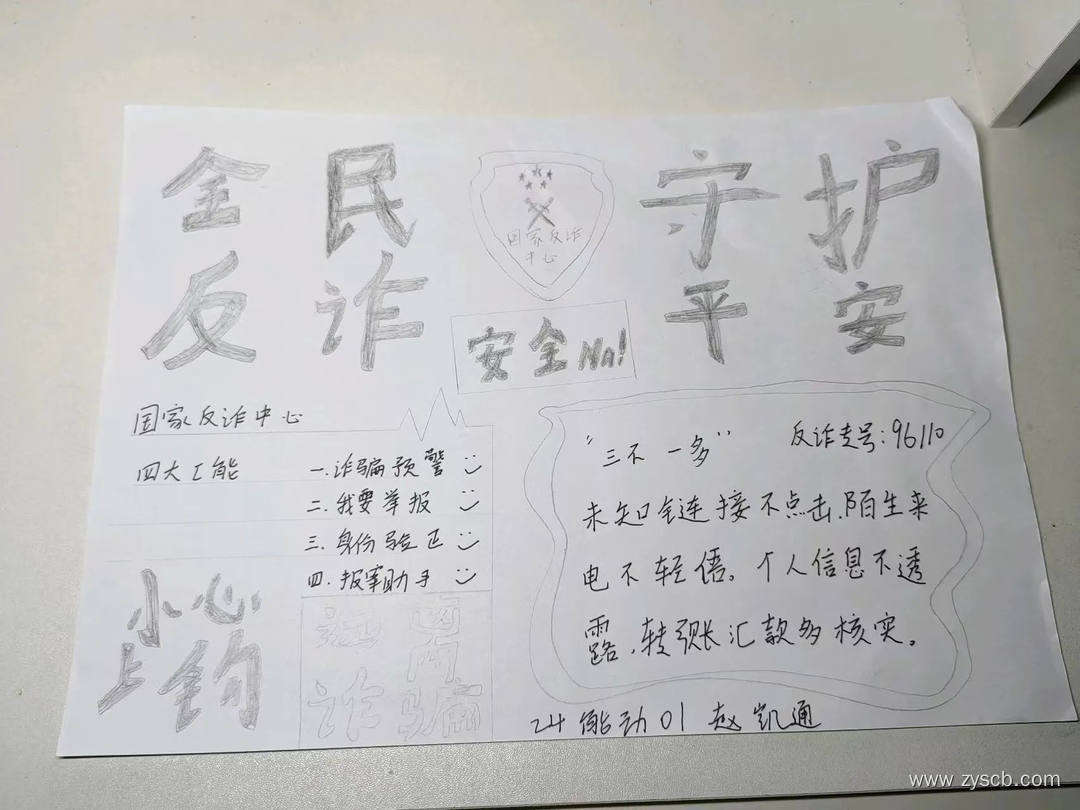 全民
反诈
守护
平安
国家反诈
中心
安全No!
国家反诈中心
四大工能
一.诈骗预警
二.我要举报
三.身份验正
四.报案助手
小心
上钩
远离
诈骗
"三不一多"
反诈专号:96110
未知链接不点击,陌生来
电不轻信。个人信息不透
露,转账汇款多核实。
24能动01 赵凯通
www.zyscb.com